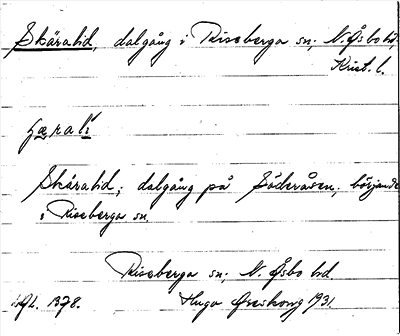 Skäralid, dalgång i Riseberga sn; N. Åsbo hd,
Krist. l.
Skäralid; dalgång på Söderåsen; börjande
i Riseberga sn.
Riseberga sn; N. Åsbo hd.
1378. Hugo Areskoug 1931.